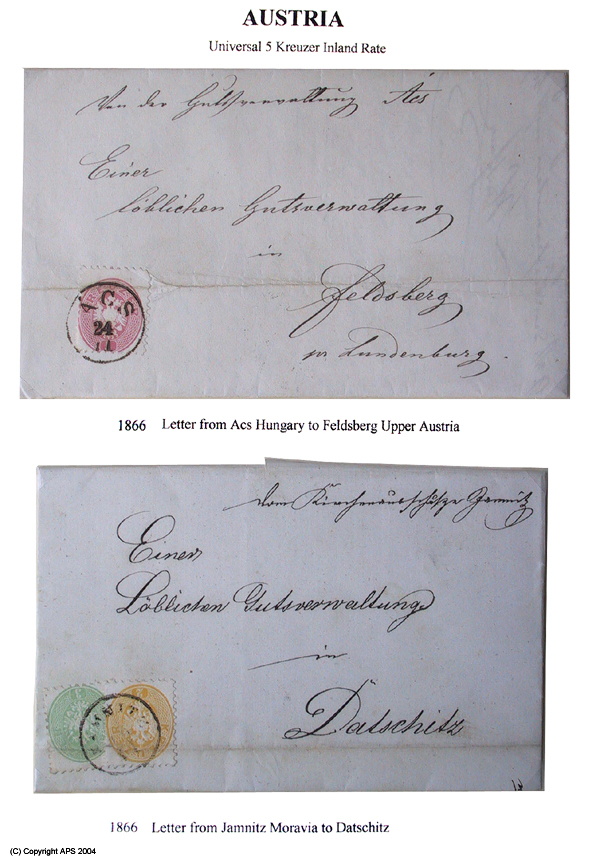 AUSTRIA
Universal 5 Kreuzer Inland Rate
Von der Gutsverwaltung Ács
Einer
löblichen Gutsverwaltung
in
Feldsberg
pr Lundenburg.
ÁCS
24
11
1866 Letter from Acs Hungary to Feldsberg Upper Austria
vom Kirchenausschuße Jamnitz
Einer
Löblichen Gutsverwaltung
in
Datschitz
1866 Letter from Jamnitz Moravia to Datschitz
(C) Copyright APS 2004